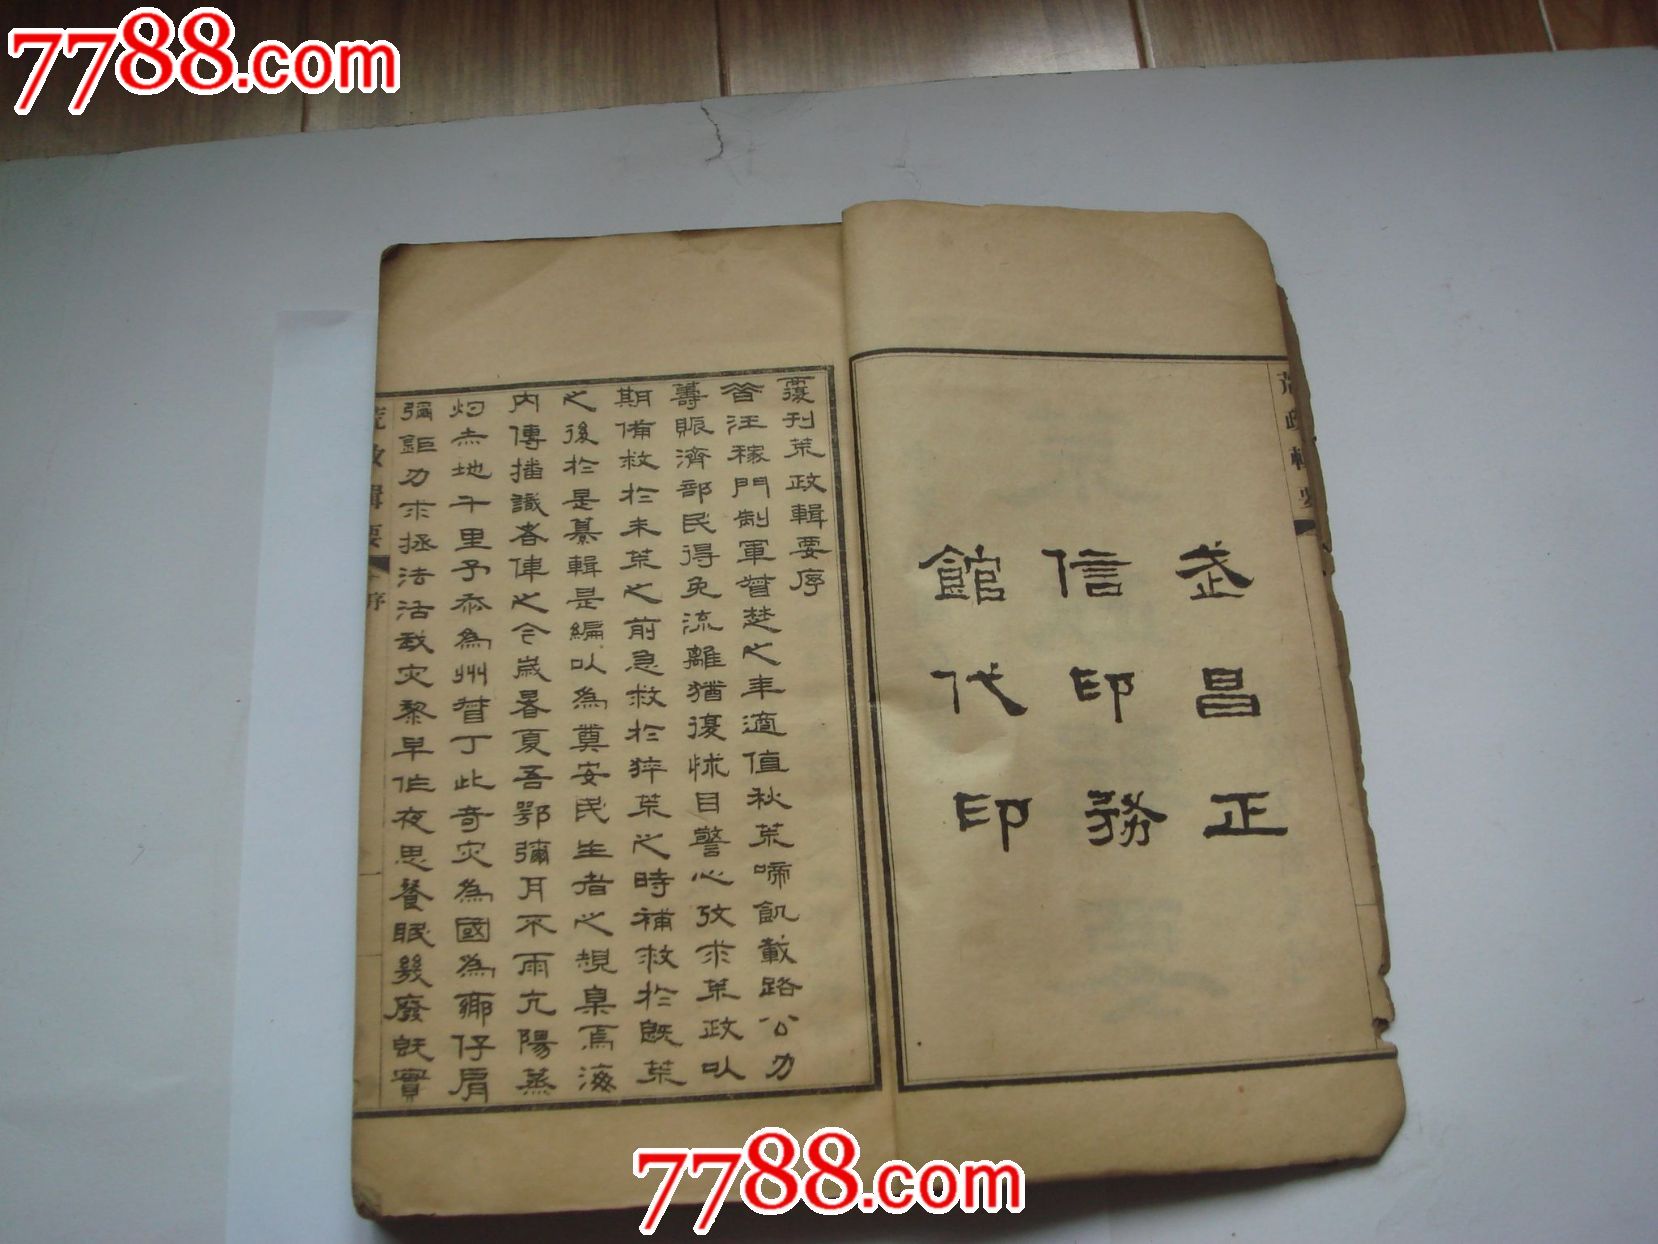 7788.com
荒政輯要
武昌正
信印務
館代印
覆刊荒政輯要序
昔汪稼門制軍督楚之年適值秋荒啼飢載路公力
籌賑濟部民得免流離猶復怵目警心孜求荒政以
期備救於未荒之前急救於猝荒之時補救於既荒
之後於是纂輯是編以為奠安民生者之規臬焉海
內傳播識者偉之今歲暑夏吾鄂彌月不雨亢陽蒸
灼赤地千里予忝為州督丁此奇災為國為鄉仔肩
彌鉅力求拯法活我災黎早作夜思餐眠幾廢既實
荒政輯要
序
一
7788.com